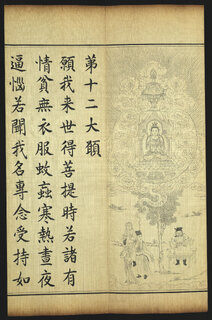 第十二大願
願我来世得菩提時若諸有
情貧無衣服蚊蝱寒熱晝夜
逼惱若聞我名專念受持如